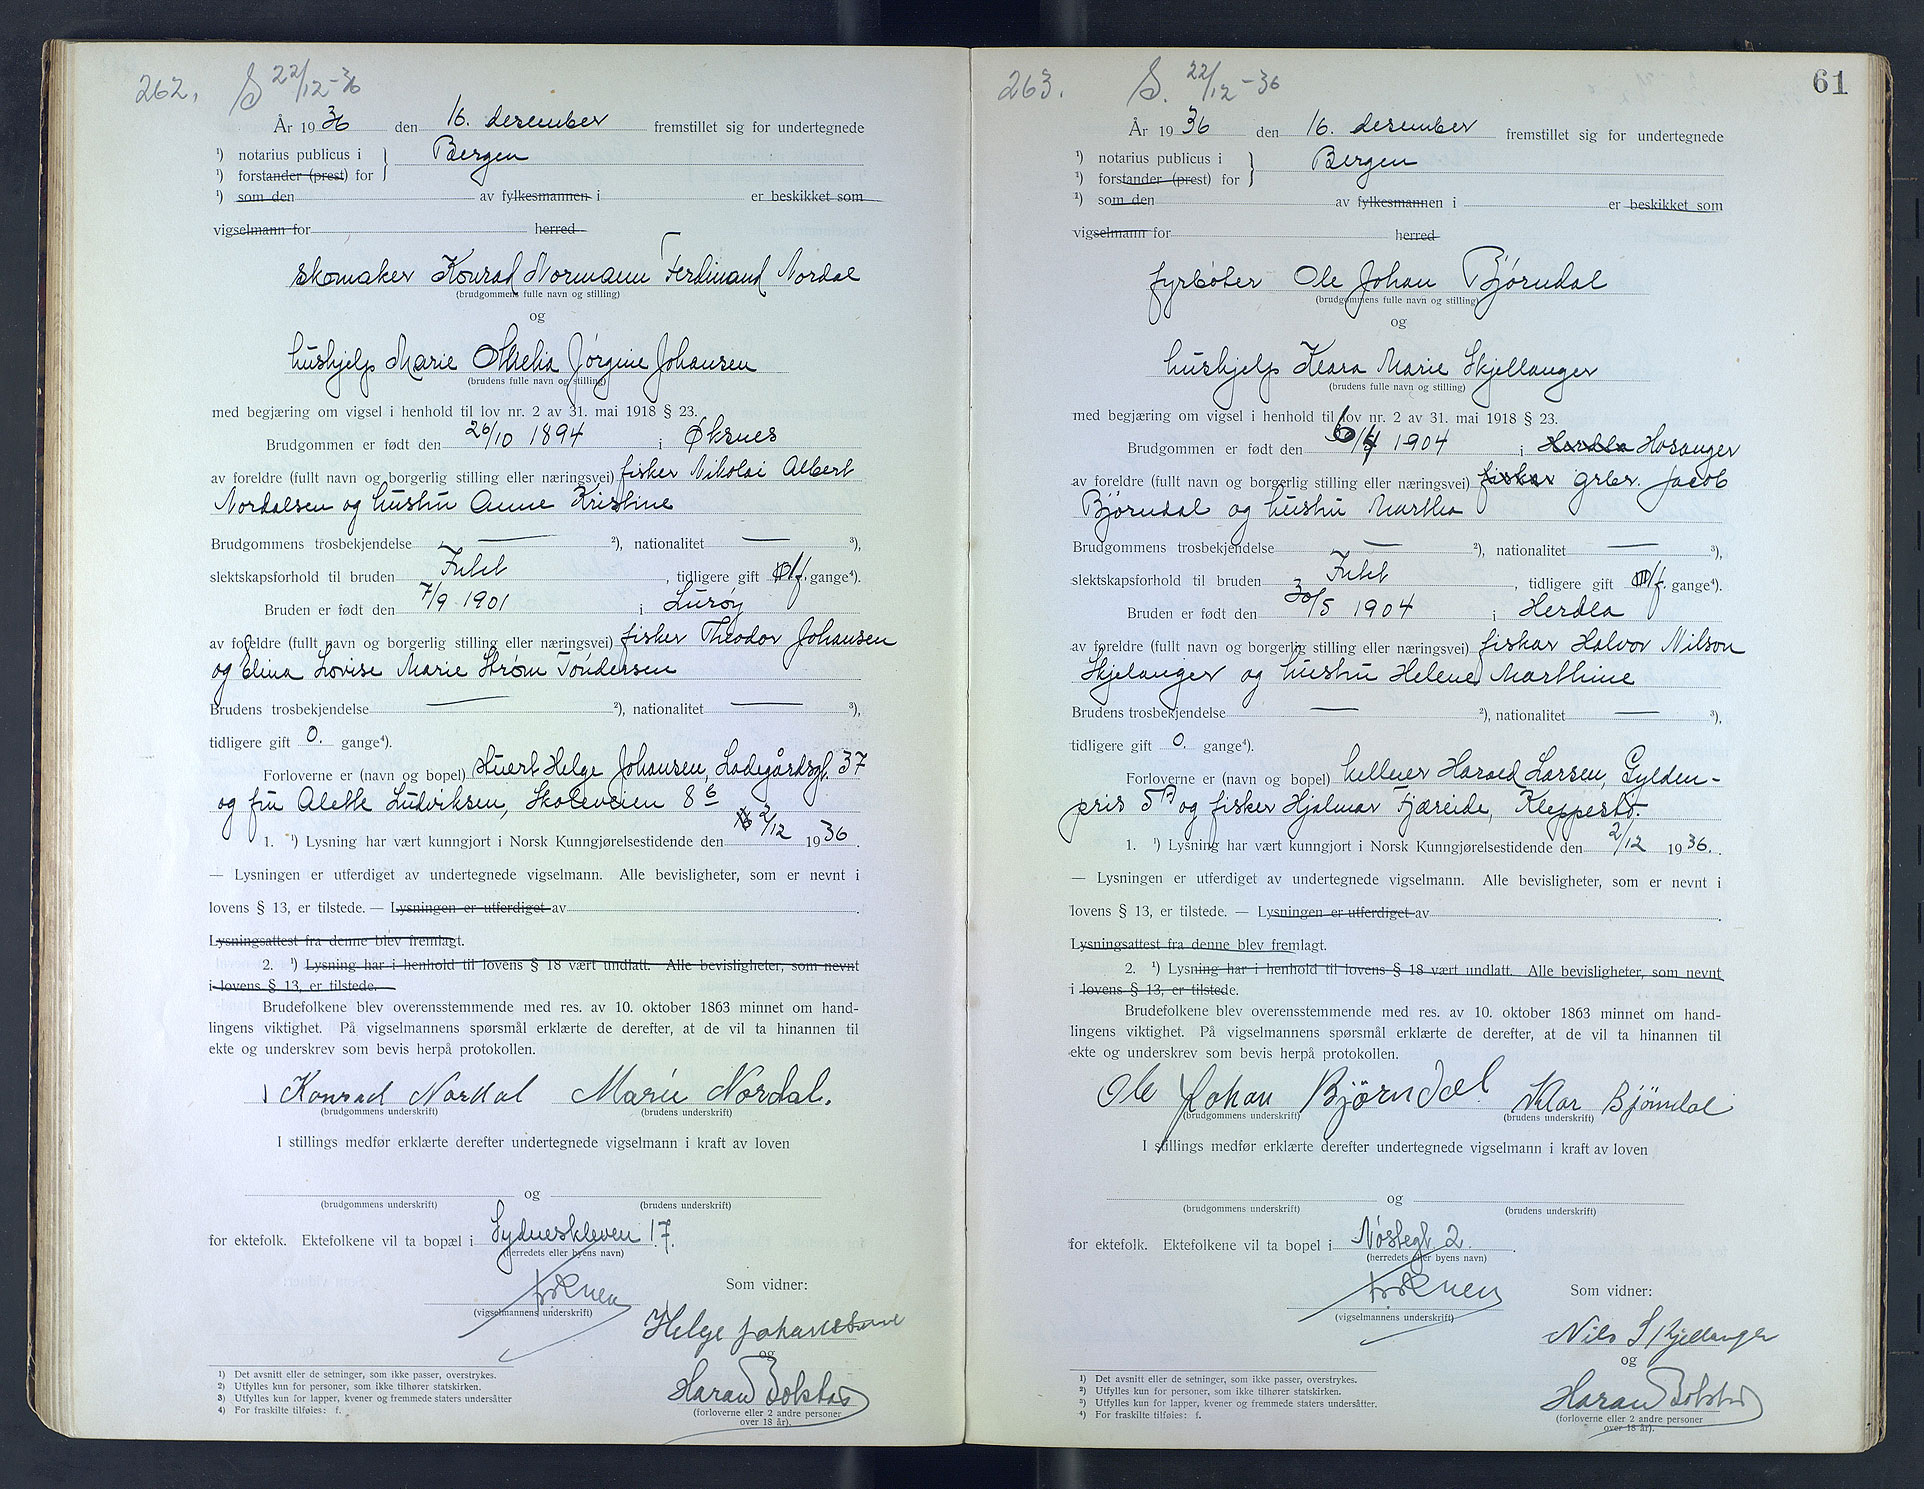 262. S 22/12-36
År 1936 den 16. desember fremstillet sig for undertegnede
¹) notarius publicus i } Bergen
¹) forstander (prest) for
¹) som den av fylkesmannen i er beskikket som
vigselmann for herred
skomaker Konrad Normann Ferdinand Nordal
(brudgommens fulle navn og stilling)
og
hushjelp Marie Othelia Jørgine Johansen
(brudens fulle navn og stilling)
med begjæring om vigsel i henhold til lov nr. 2 av 31. mai 1918 § 23.
Brudgommen er født den 26/10 1894 i Øksnes
av foreldre (fullt navn og borgerlig stilling eller næringsvei) fisker Nikolai Albert
Nordalsen og hustru Anne Kristine
Brudgommens trosbekjendelse — ²), nationalitet — ³),
slektskapsforhold til bruden Intet, tidligere gift 1 f. gange⁴).
Bruden er født den 7/9 1901 i Lurøy
av foreldre (fullt navn og borgerlig stilling eller næringsvei) fisker Theodor Johansen
og Elina Lovise Marie Strøm Tøndersen
Brudens trosbekjendelse — ²), nationalitet — ³),
tidligere gift 0. gange⁴).
Forloverne er (navn og bopel) stuert Helge Johansen, Ladegårdsgt. 37
og fru Alette Ludviksen, Skoleveien 8 b
1. ¹) Lysning har vært kunngjort i Norsk Kunngjørelsestidende den 2/12 1936.
— Lysningen er utferdiget av undertegnede vigselmann. Alle bevisligheter, som er nevnt i
lovens § 13, er tilstede. — Lysningen er utferdiget av
Lysningsattest fra denne blev fremlagt.
2. ¹) Lysning har i henhold til lovens § 18 vært undlatt. Alle bevisligheter, som nevnt
i lovens § 13, er tilstede.
Brudefolkene blev overensstemmende med res. av 10. oktober 1863 minnet om hand-
lingens viktighet. På vigselmannens spørsmål erklærte de derefter, at de vil ta hinannen til
ekte og underskrev som bevis herpå protokollen.
Konrad Nordal Marie Nordal.
(brudgommens underskrift) (brudens underskrift)
I stillings medfør erklærte derefter undertegnede vigselmann i kraft av loven
og
(brudgommens underskrift) (brudens underskrift)
for ektefolk. Ektefolkene vil ta bopæl i Sydneskleven 17.
(herredets eller byens navn)
Som vidner:
(vigselmannens underskrift)
Helge Johansen
og
Haran Bokstad
(forloverne eller 2 andre personer
over 18 år).
1) Det avsnitt eller de setninger, som ikke passer, overstrykes.
2) Utfylles kun for personer, som ikke tilhører statskirken.
3) Utfylles kun for lapper, kvener og fremmede staters undersåtter
4) For fraskilte tilføies: f.
263. S. 22/12-36
61
År 1936 den 16. desember fremstillet sig for undertegnede
¹) notarius publicus i } Bergen
¹) forstander (prest) for
¹) som den av fylkesmannen i er beskikket som
vigselmann for herred
fyrbøter Ole Johan Bjørndal
(brudgommens fulle navn og stilling)
og
hushjelp Klara Marie Skjellanger
(brudens fulle navn og stilling)
med begjæring om vigsel i henhold til lov nr. 2 av 31. mai 1918 § 23.
Brudgommen er født den 6/4 1904 i Herdla Hosanger
av foreldre (fullt navn og borgerlig stilling eller næringsvei) fisker grbr. Jacob
Bjørndal og hustru Martha
Brudgommens trosbekjendelse — ²), nationalitet — ³),
slektskapsforhold til bruden Intet, tidligere gift 1 f. gange⁴).
Bruden er født den 30/5 1904 i Herdla
av foreldre (fullt navn og borgerlig stilling eller næringsvei) fisker Halvor Nilson
Skjelanger og hustru Helene Marthine
Brudens trosbekjendelse — ²), nationalitet — ³),
tidligere gift 0. gange⁴).
Forloverne er (navn og bopel) kellner Harald Larsen, Gylden-
pris 5 B og fisker Hjalmar Fjæreide, Kleppestø.
1. ¹) Lysning har vært kunngjort i Norsk Kunngjørelsestidende den 2/12 1936.
— Lysningen er utferdiget av undertegnede vigselmann. Alle bevisligheter, som er nevnt i
lovens § 13, er tilstede. — Lysningen er utferdiget av
Lysningsattest fra denne blev fremlagt.
2. ¹) Lysning har i henhold til lovens § 18 vært undlatt. Alle bevisligheter, som nevnt
i lovens § 13, er tilstede.
Brudefolkene blev overensstemmende med res. av 10. oktober 1863 minnet om hand-
lingens viktighet. På vigselmannens spørsmål erklærte de derefter, at de vil ta hinannen til
ekte og underskrev som bevis herpå protokollen.
Ole Johan Bjørndal Klar Bjørndal
(brudgommens underskrift) (brudens underskrift)
I stillings medfør erklærte derefter undertegnede vigselmann i kraft av loven
og
(brudgommens underskrift) (brudens underskrift)
for ektefolk. Ektefolkene vil ta bopel i Nøstegt. 2.
(herredets eller byens navn)
Som vidner:
(vigselmannens underskrift)
Nils Skjellanger
og
Haran Bokstad
(forloverne eller 2 andre personer
over 18 år).
1) Det avsnitt eller de setninger, som ikke passer, overstrykes.
2) Utfylles kun for personer, som ikke tilhører statskirken.
3) Utfylles kun for lapper, kvener og fremmede staters undersåtter.
4) For fraskilte tilføies: f.